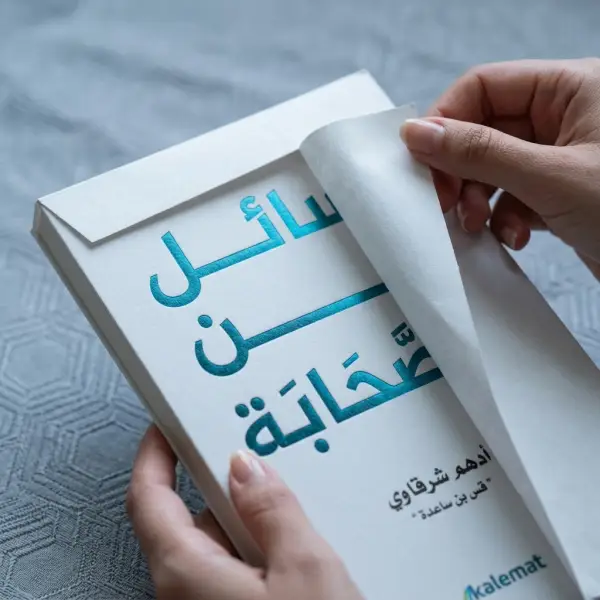 سائل
ـن
صَّحَابَة
أدهم شرقاوي
" قس بن ساعدة "
kalemat